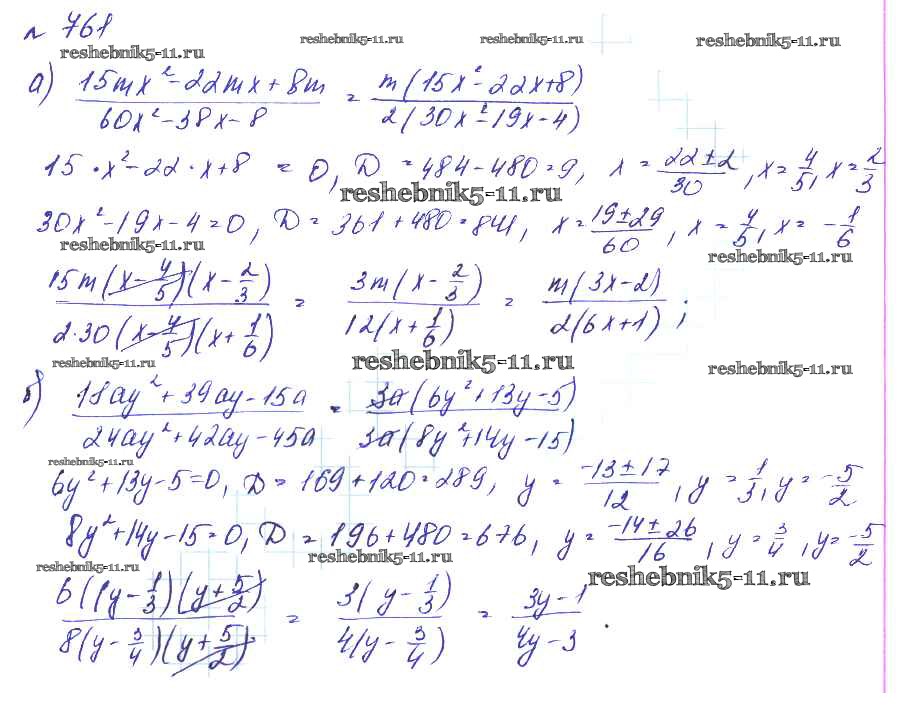 № 761
reshebnik5-11.ru reshebnik5-11.ru reshebnik5-11.ru reshebnik5-11.ru
а) (15mx²-22mx+8m)/(60x²-38x-8) = m(15x²-22x+8)/2(30x²-19x-4)
15·x²-22·x+8 = 0, D = 484-480=9, x = (22±2)/30, x=4/5, x=2/3
reshebnik5-11.ru
30x²-19x-4=0, D=361+480=841, x=(19±29)/60, x=4/5, x= -1/6
reshebnik5-11.ru reshebnik5-11.ru
15m(x-4/5)(x-2/3)/2·30(x-4/5)(x+1/6) = 3m(x-2/3)/12(x+1/6) = m(3x-2)/2(6x+1);
reshebnik5-11.ru reshebnik5-11.ru reshebnik5-11.ru
б) (18ay²+39ay-15a)/(24ay²+42ay-45a) = 3a(6y²+13y-5)/3a(8y²+14y-15)
reshebnik5-11.ru
6y²+13y-5=0, D=169+120=289, y = (-13±17)/12, y=1/3, y=-5/2
8y²+14y-15=0, D = 196+480=676, y=(-14±26)/16, y=3/4, y=-5/2
reshebnik5-11.ru reshebnik5-11.ru reshebnik5-11.ru
6(y-1/3)(y+5/2)/8(y-3/4)(y+5/2) = 3(y-1/3)/4(y-3/4) = (3y-1)/(4y-3).